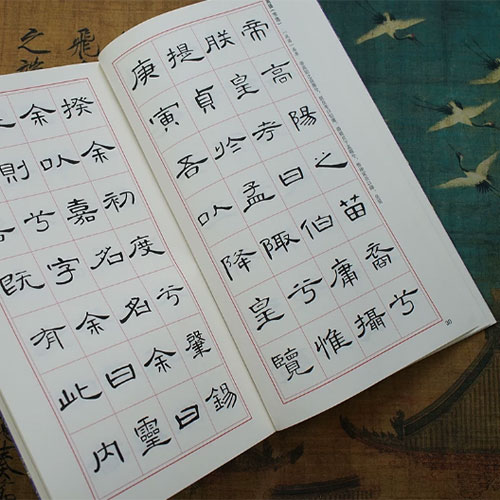 帝高陽之苗裔兮
朕皇考曰伯庸攝
提貞於孟陬兮惟
庚寅吾以降皇覽
揆余初度兮肇錫
余以嘉名名余曰
則兮字余曰靈
既有此内
飛
之